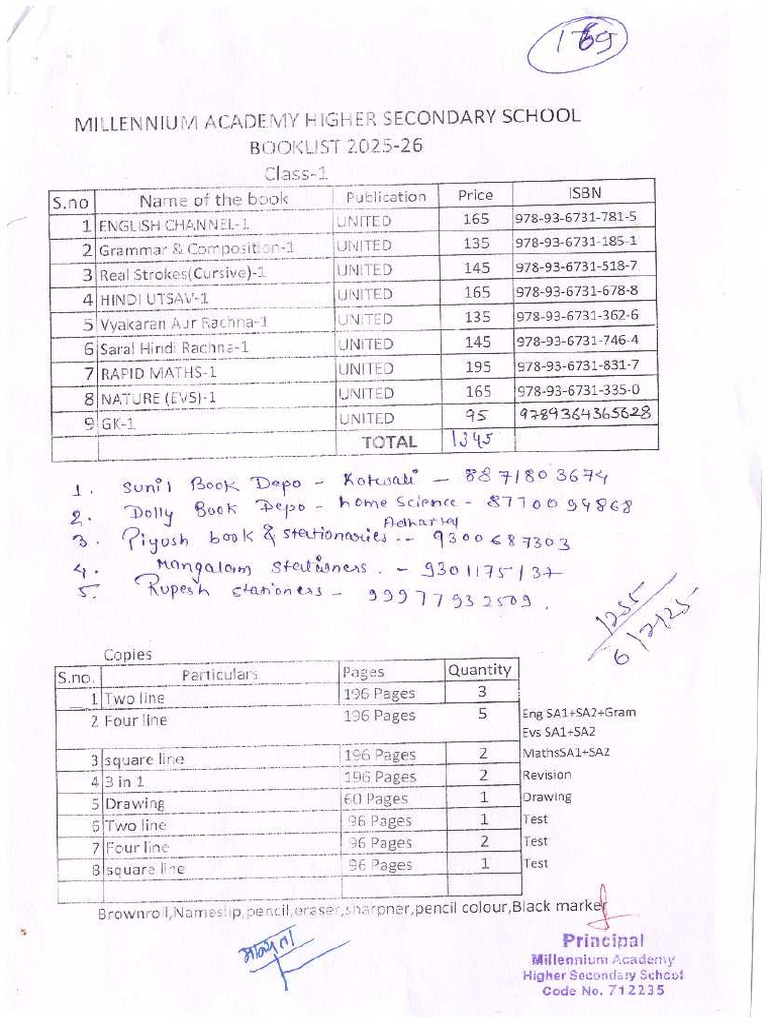 169
MILLENNIUM ACADEMY HIGHER SECONDARY SCHOOL
BOOKLIST 2025-26
Class-1
S.no Name of the book Publication Price ISBN
1 ENGLISH CHANNEL-1 UNITED 165 978-93-6731-781-5
2 Grammar & Composition-1 UNITED 135 978-93-6731-185-1
3 Real Strokes(Cursive)-1 UNITED 145 978-93-6731-518-7
4 HINDI UTSAV-1 UNITED 165 978-93-6731-678-8
5 Vyakaran Aur Rachna-1 UNITED 135 978-93-6731-362-6
6 Saral Hindi Rachna-1 UNITED 145 978-93-6731-746-4
7 RAPID MATHS-1 UNITED 195 978-93-6731-831-7
8 NATURE (EVS)-1 UNITED 165 978-93-6731-335-0
9 GK-1 UNITED 95 9789364365628
TOTAL 1345
1. Sunil Book Depo - Kotwali - 8871803674
2. Dolly Book Depo - home Science - 8770094868
3. Piyush book & stationaries -- Adhartal 9300687303
4. Mangalam Stationers. - 9301175137
5. Rupesh stationers - 99977932509.
1255
6/2/25
Copies
S.no. Particulars Pages Quantity
1 Two line 196 Pages 3
2 Four line 196 Pages 5 Eng SA1+SA2+Gram
Evs SA1+SA2
3 square line 196 Pages 2 MathsSA1+SA2
4 3 in 1 196 Pages 2 Revision
5 Drawing 60 Pages 1 Drawing
6 Two line 96 Pages 1 Test
7 Four line 96 Pages 2 Test
8 square line 96 Pages 1 Test
Brownroll,Nameslip,pencil,eraser,sharpner,pencil colour,Black marker
मान्यता
Principal
Millennium Academy
Higher Secondary School
Code No. 712235